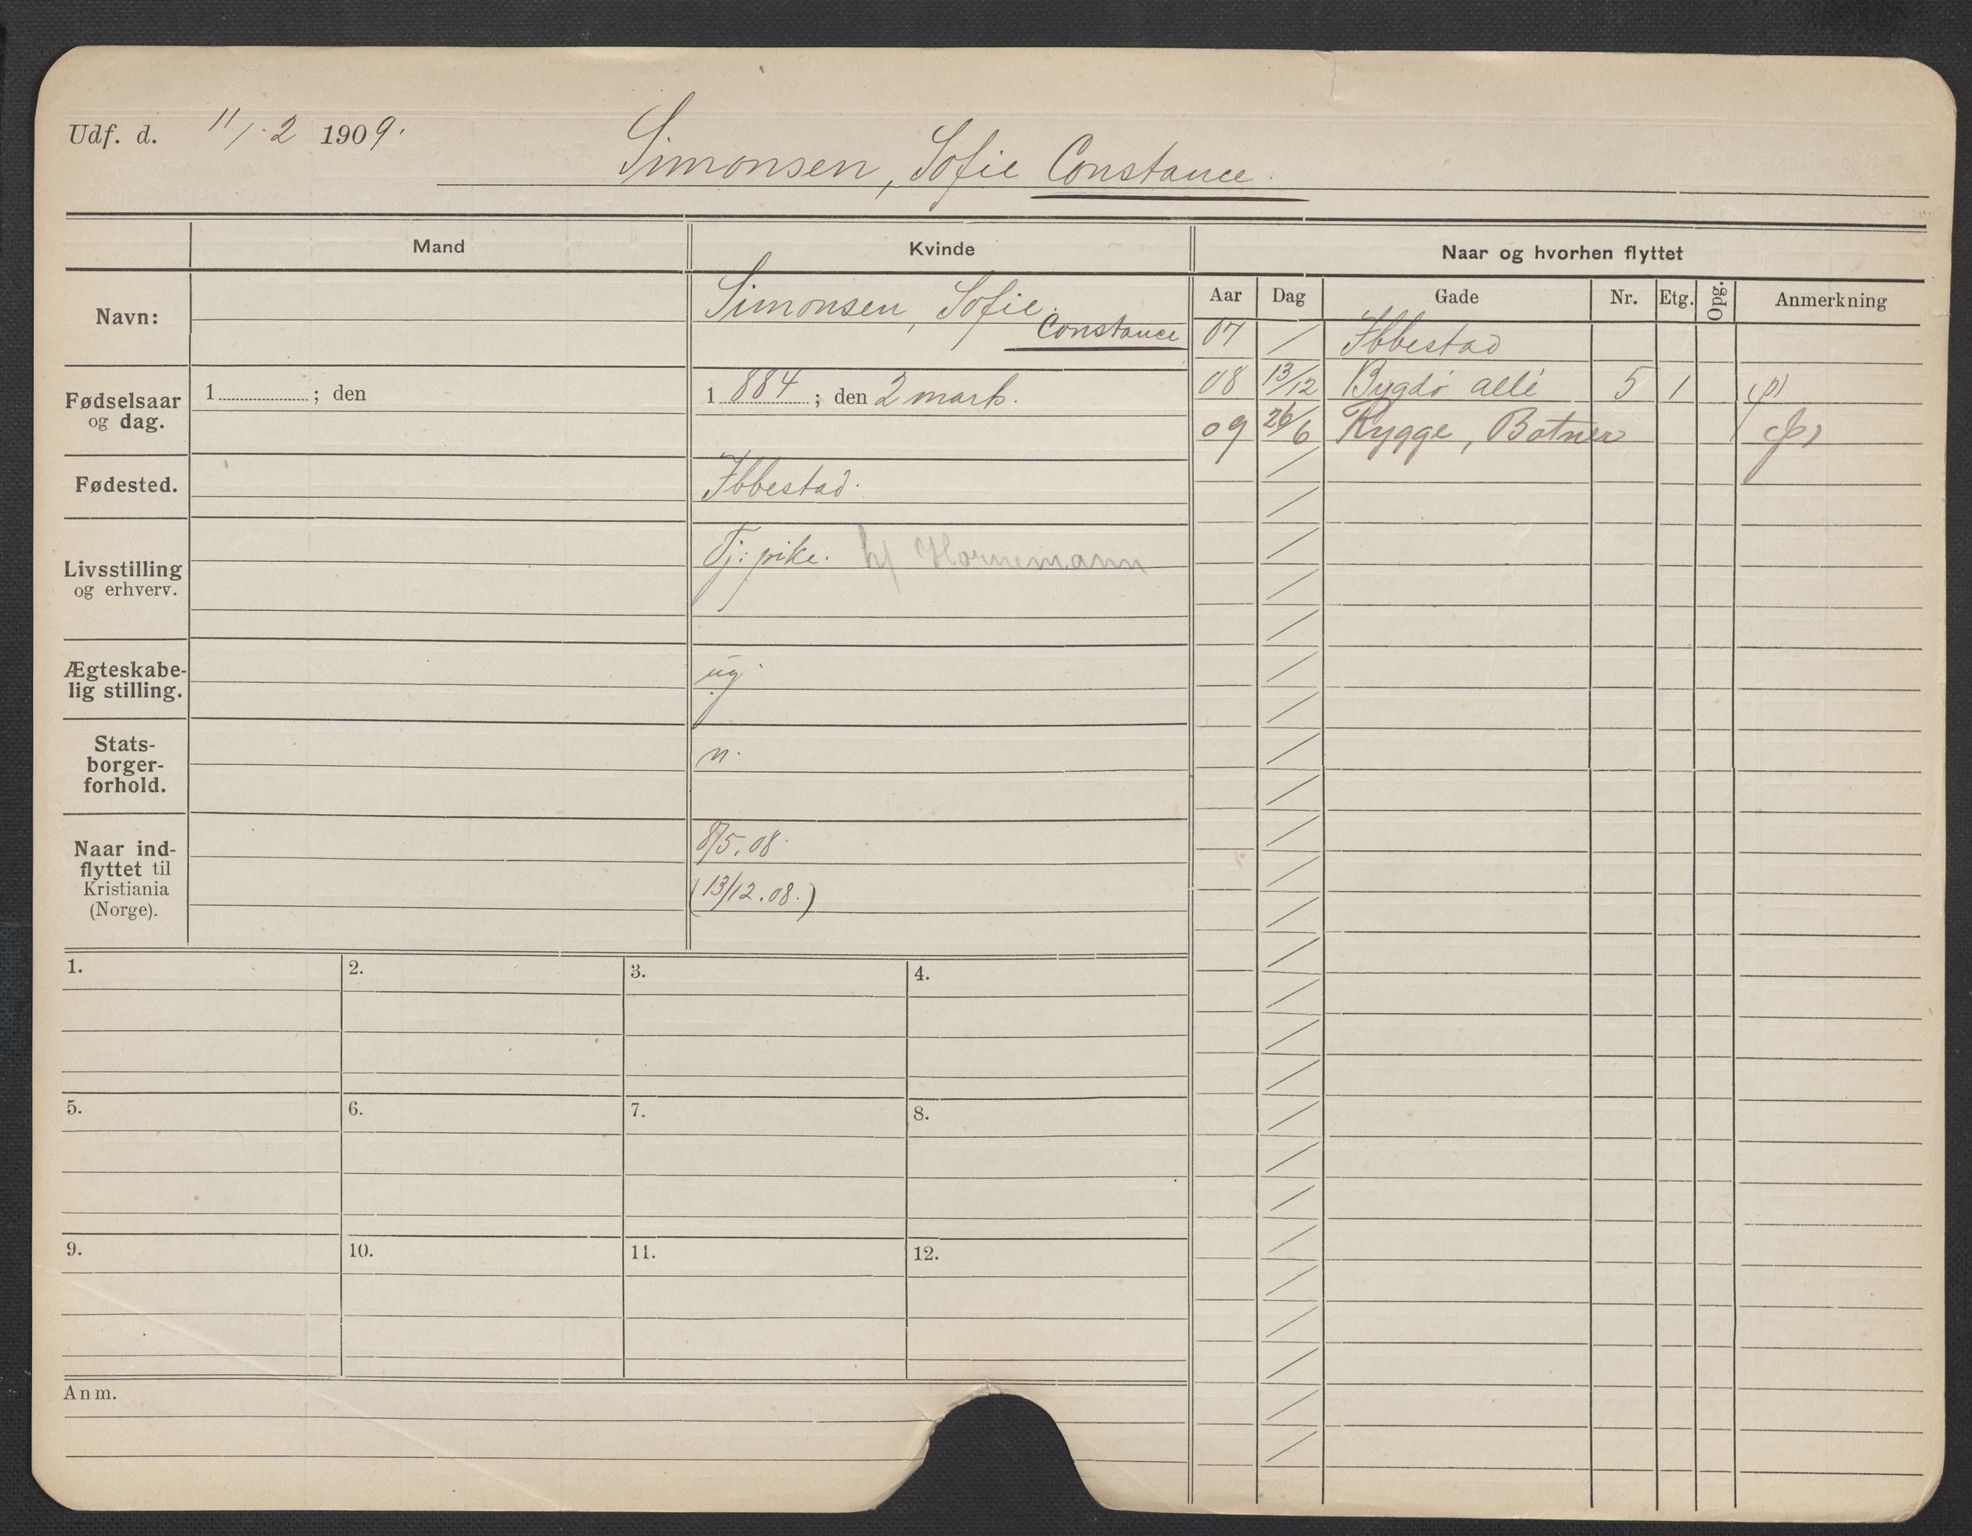 Udf. d. 11/2 1909.
Simonsen, Sofie Constance.
Mand
Kvinde
Naar og hvorhen flyttet
Aar
Dag
Gade
Nr.
Etg.
Opg.
Anmerkning
Navn:
Simonsen, Sofie.
Constance
07 / Ibbestad
08 13/12 Bygdø allé 5 1
09 26/6 Rygge, Botner
Fødselsaar
og dag.
1 ; den
1 884 ; den 2 marts.
Fødested.
Ibbestad.
Livsstilling
og erhverv.
Tj: pike. h/ Hornemann
Ægteskabe-
lig stilling.
ug.
Stats-
borger-
forhold.
n.
Naar ind-
flyttet til
Kristiania
(Norge).
8/5.08.
(13/12.08.)
1.
2.
3.
4.
5.
6.
7.
8.
9.
10.
11.
12.
Anm.